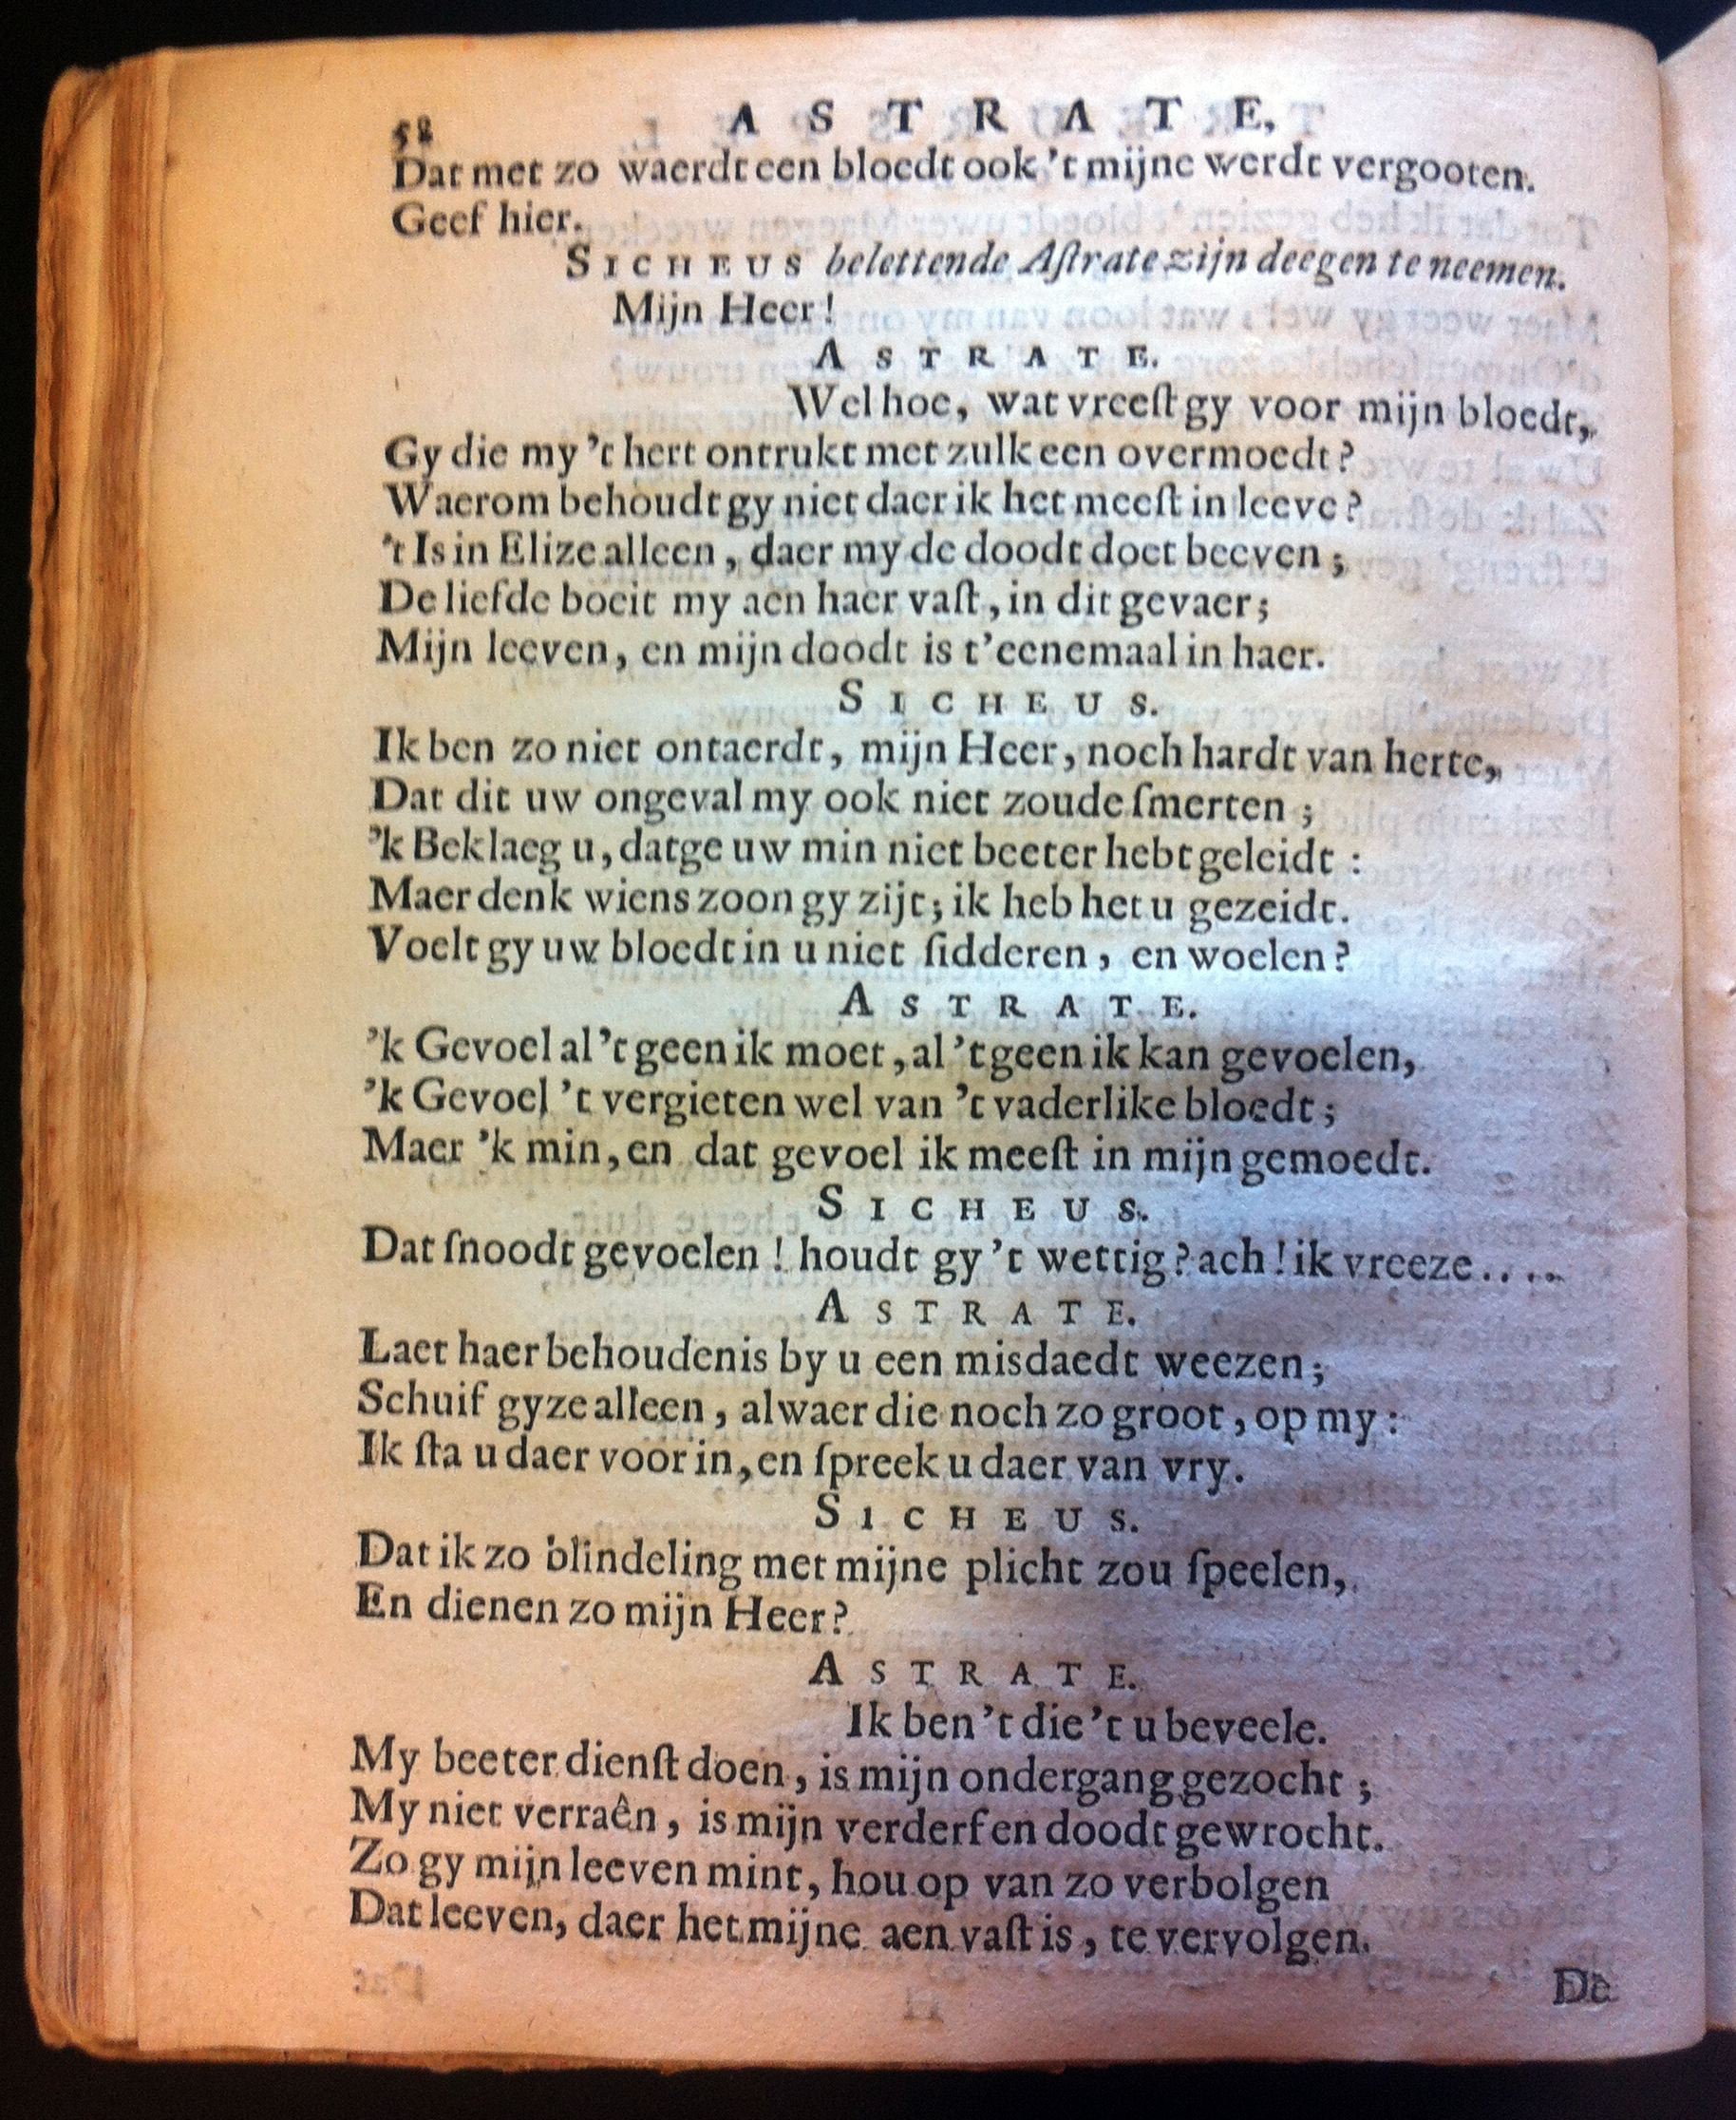 58 ASTRATE,
Dat met zo waerdt een bloedt ook 't mijne werdt vergooten.
Geef hier.
SICHEUS belettende Aſtrate zijn deegen te neemen.
Mijn Heer!
ASTRATE.
Wel hoe, wat vreeſt gy voor mijn bloedt,
Gy die my 't hert ontrukt met zulk een overmoedt?
Waerom behoudt gy niet daer ik het meeſt in leeve?
't Is in Elize alleen, daer my de doodt doet beeven;
De liefde boeit my aen haer vaſt, in dit gevaer;
Mijn leeven, en mijn doodt is t'eenemaal in haer.
SICHEUS.
Ik ben zo niet ontaerdt, mijn Heer, noch hardt van herte,
Dat dit uw ongeval my ook niet zoude ſmerten;
'k Beklaeg u, datge uw min niet beeter hebt geleidt:
Maer denk wiens zoon gy zijt; ik heb het u gezeidt.
Voelt gy uw bloedt in u niet ſidderen, en woelen?
ASTRATE.
'k Gevoel al 't geen ik moet, al 't geen ik kan gevoelen,
'k Gevoel 't vergieten wel van 't vaderlike bloedt;
Maer 'k min, en dat gevoel ik meeſt in mijn gemoedt.
SICHEUS.
Dat ſnoodt gevoelen! houdt gy 't wettig? ach! ik vreeze.....
ASTRATE.
Laet haer behoudenis by u een misdaedt weezen;
Schuif gyze alleen, al waer die noch zo groot, op my:
Ik ſta u daer voor in, en ſpreek u daer van vry.
SICHEUS.
Dat ik zo blindeling met mijne plicht zou ſpeelen,
En dienen zo mijn Heer?
ASTRATE.
Ik ben 't die 't u beveele.
My beeter dienſt doen, is mijn ondergang gezocht;
My niet verraên, is mijn verderf en doodt gewrocht.
Zo gy mijn leeven mint, hou op van zo verbolgen
Dat leeven, daer het mijne aen vaſt is, te vervolgen.
De